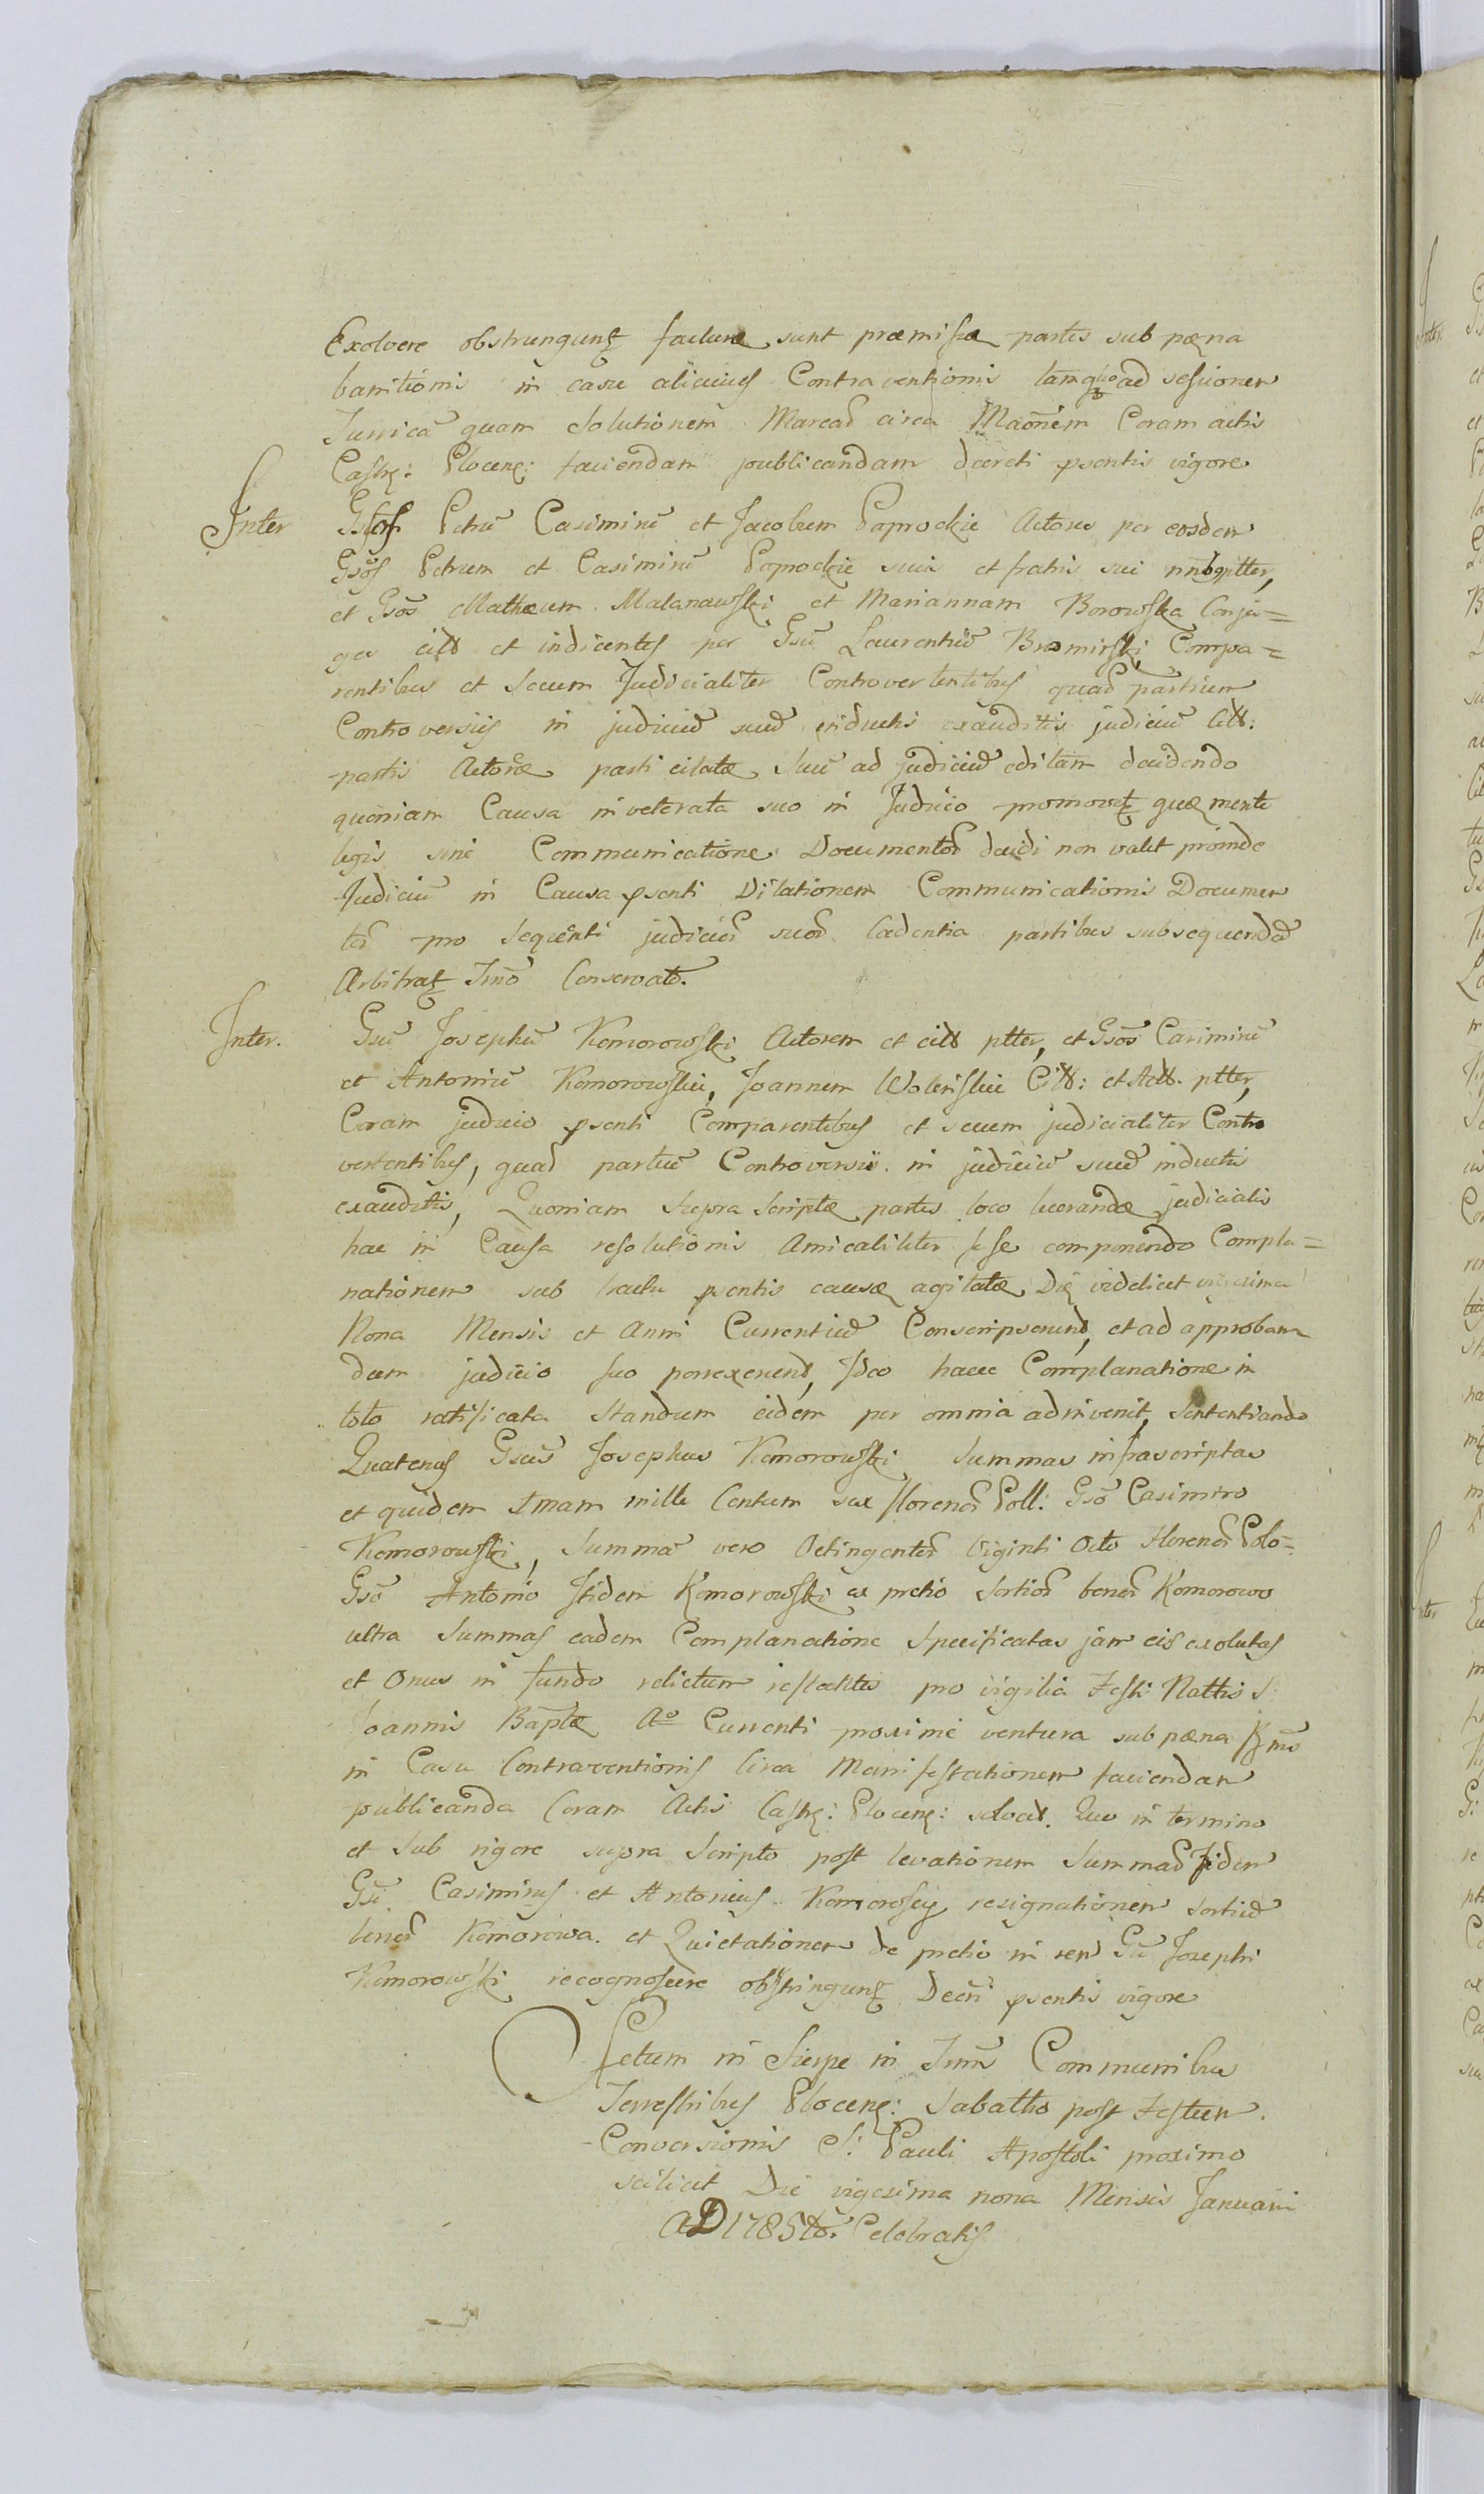 Exolvere obstringunt facturæ sunt præmissæ partes sub pæna
bannitionis in casu alicuius Contraventionis tam quo ad sessionem
Turricã quam Solutionem Marcaꝝ circa Maõnem Coram actis
Castr: Plocen: faciendam publicandam decreti pñtis vigore
Inter Gsos Petrũ Casimirũ et Jacobum Paprockie Actores per eosdem
Gsos Petrum et Casimirũ Paprockie suis et fratris sui nnbq ptter,
et Gsõs Mathæum Malanowski et Mariannam Borowska Conju=
ges citt et indicentes per Gsũ Laurentiũ Bromirski Compa=
rentibus et Secum Judicialiter Controvertentibus quaꝝ partium
Controversiis in judiciũ suũ inductis exauditis judiciũ Att:
partis Actoræ parti citatæ suũ ad judiciũ editam decidendo
quoniam Causa inveterata suo in Judicio promovet quæ mente
legis sine Communicatione Documentoꝝ decidi non valet proinde
Judiciũ in Causa pñti Dilationem Communicationis Documen
toꝝ pro sequenti judicioꝝ suoꝝ Cadentia partibus subsequendã
Arbitrat Tmõ Conservato.
Inter. Gsũ Josephũ Komorowski Actorem et citt ptter, et Gsõs Casimirũ
et Antoniũ Komorowskie, Joannem Wolenskie Citt: et Att. ptter,
Coram judicio pñti Comparentibus et secum judicialiter Contro
vertentibus, quaꝝ partiũ Controversiis in judiciũ suũ inductis
exauditis, Quoniam supra scriptæ partes loco lucrandæ judicialis
hac in Causa resolutionis Amicaliter se se componendo Compla=
nationem sub tractu pñtis causæ agitatæ Die videlicet vigesima
Nona Mensis et Anni Currentiũ Conscripserunt, et ad approban
dum judicio suo porrexerunt, Ideo hance Complanatione in
toto ratificata Standum eidem per omnia adinvenit, Sententiando
Quatenus Gsus Josephus Komorowski Summas infrascriptas
et quidem Imam mille Centum sex florenoꝝ Poll: Gsõ Casimiro
Komorowski, Summã vero Octingentoꝝ Viginti Octo Florenoꝝ Polo=
Gsõ Antonio Itidem Komorowski ex pretio Sortioꝝ bonoꝝ Komorowo
ultra Summas eadem Complanatione Specificatas jam eis exolutas
et Onus in fundo relictum pro vigilia Festi Nattis S
Joannis Baptæ Aº Currenti proxime ventura sub pæna
in Casu Contraventionis Circa Manifestationem faciendam
publicanda Coram Actis Castr: Plocen: solvat. Quo in termino
et Sub rigore supra Scripto post levationem Summaꝝ Itidem
Gsi Casimirus et Antonius Komoroscy resignationem Sortiũ
bonoꝝ Komorowa et Quietationem de pretio in rem Gsi Josephi
Komorowski recognoscere obstringunt Decri pñtis vigore
Actum in Sierpc in Tmis Communibus
Terrestribus Plocen: Sabatho post Festum
Conversionis S. Pauli Apostoli proximo
scilicet Die vigesima nona Mensis Januarii
AD 1785to. Celebratis